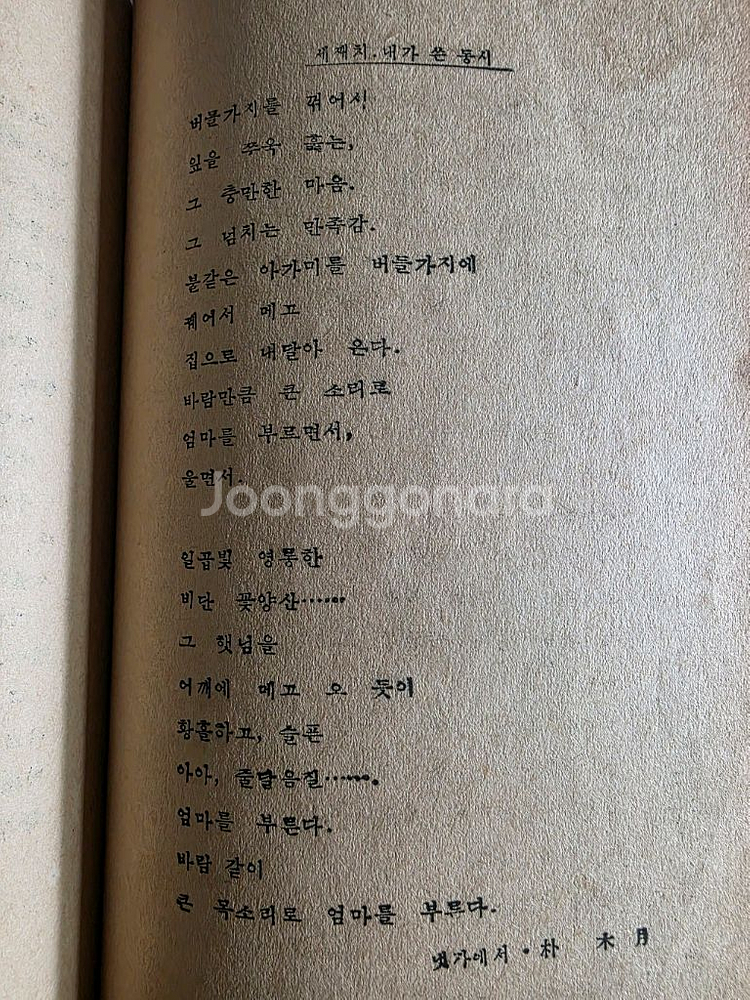 세째치.내가 쓴 동시
버들가지를 꺾어서
잎을 쭈욱 훑는,
그 충만한 마음.
그 넘치는 만족감.
불같은 아가미를 버들가지에
꿰어서 메고
집으로 내달아 온다.
바람만큼 큰 소리로
엄마를 부르면서,
울면서.
Joonggonara
일곱빛 영롱한
비단 꽃양산……
그 햇님을
어깨에 메고 오 듯이
황홀하고, 슬픈
아아, 줄달음질…….
엄마를 부른다.
바람 같이
큰 목소리로 엄마를 부르다.
냇가에서·朴 木 月